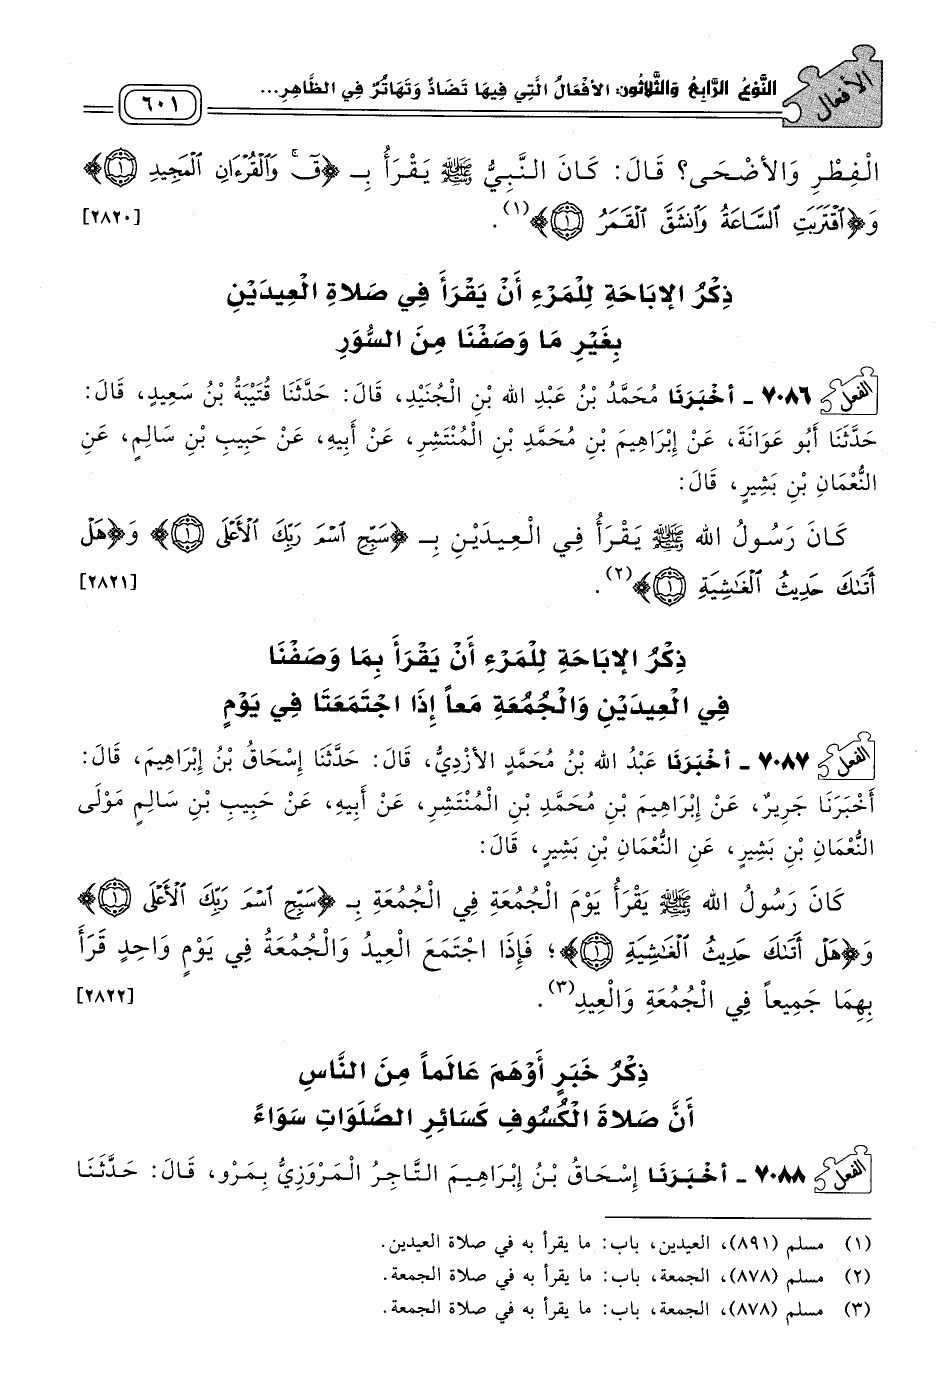 الأفعال
النَّوْعُ الرَّابِعُ والثَّلاثُون: الأفْعَالُ الَّتِي فِيهَا تَضَادٌّ وَتَهَاتُرٌ فِي الظَّاهِرِ...
٦٠١
الْفِطْرِ وَالأضْحَى؟ قَالَ: كَانَ النَّبِيُّ ﷺ يَقْرَأُ بِـ ﴿قٓۚ وَٱلْقُرْءَانِ ٱلْمَجِيدِ ۝١﴾
وَ﴿ٱقْتَرَبَتِ ٱلسَّاعَةُ وَٱنشَقَّ ٱلْقَمَرُ ۝١﴾(١). [٢٨٢٠]
ذِكْرُ الإبَاحَةِ لِلْمَرْءِ أَنْ يَقْرَأَ فِي صَلاةِ الْعِيدَيْنِ
بِغَيْرِ مَا وَصَفْنَا مِنَ السُّوَرِ
الفعل ٧٠٨٦ - أخْبَرَنَا مُحَمَّدُ بْنُ عَبْدِ الله بْنِ الْجُنَيْدِ، قَالَ: حَدَّثَنَا قُتَيْبَةُ بْنُ سَعِيدٍ، قَالَ:
حَدَّثَنَا أَبُو عَوَانَةَ، عَنْ إِبْرَاهِيمَ بْنِ مُحَمَّدِ بْنِ الْمُنْتَشِرِ، عَنْ أَبِيهِ، عَنْ حَبِيبِ بْنِ سَالِمٍ، عَنِ
النُّعْمَانِ بْنِ بَشِيرٍ، قَالَ:
كَانَ رَسُولُ الله ﷺ يَقْرَأُ فِي الْعِيدَيْنِ بِـ ﴿سَبِّحِ ٱسْمَ رَبِّكَ ٱلْأَعْلَى ۝١﴾ وَ﴿هَلْ
أَتَىٰكَ حَدِيثُ ٱلْغَٰشِيَةِ ۝١﴾(٢). [٢٨٢١]
ذِكْرُ الإبَاحَةِ لِلْمَرْءِ أَنْ يَقْرَأَ بِمَا وَصَفْنَا
فِي الْعِيدَيْنِ وَالْجُمُعَةِ مَعاً إِذَا اجْتَمَعَتَا فِي يَوْمٍ
الفعل ٧٠٨٧ - أخْبَرَنَا عَبْدُ الله بْنُ مُحَمَّدٍ الأزْدِيُّ، قَالَ: حَدَّثَنَا إِسْحَاقُ بْنُ إِبْرَاهِيمَ، قَالَ:
أَخْبَرَنَا جَرِيرٌ، عَنْ إِبْرَاهِيمَ بْنِ مُحَمَّدِ بْنِ الْمُنْتَشِرِ، عَنْ أَبِيهِ، عَنْ حَبِيبِ بْنِ سَالِمٍ مَوْلَى
النُّعْمَانِ بْنِ بَشِيرٍ، عَنِ النُّعْمَانِ بْنِ بَشِيرٍ، قَالَ:
كَانَ رَسُولُ الله ﷺ يَقْرَأُ يَوْمَ الْجُمُعَةِ فِي الْجُمُعَةِ بِـ ﴿سَبِّحِ ٱسْمَ رَبِّكَ ٱلْأَعْلَى ۝١﴾
وَ﴿هَلْ أَتَىٰكَ حَدِيثُ ٱلْغَٰشِيَةِ ۝١﴾؛ فَإِذَا اجْتَمَعَ الْعِيدُ وَالْجُمُعَةُ فِي يَوْمٍ وَاحِدٍ قَرَأَ
بِهِمَا جَمِيعاً فِي الْجُمُعَةِ وَالْعِيدِ(٣). [٢٨٢٢]
ذِكْرُ خَبَرٍ أَوْهَمَ عَالَماً مِنَ النَّاسِ
أَنَّ صَلاةَ الْكُسُوفِ كَسَائِرِ الصَّلَوَاتِ سَوَاءً
الفعل ٧٠٨٨ - أخْبَرَنَا إِسْحَاقُ بْنُ إِبْرَاهِيمَ التَّاجِرُ الْمَرْوَزِيُّ بِمَرْو، قَالَ: حَدَّثَنَا
(١) مسلم (٨٩١)، العيدين، باب: ما يقرأ به في صلاة العيدين.
(٢) مسلم (٨٧٨)، الجمعة، باب: ما يقرأ به في صلاة الجمعة.
(٣) مسلم (٨٧٨)، الجمعة، باب: ما يقرأ به في صلاة الجمعة.